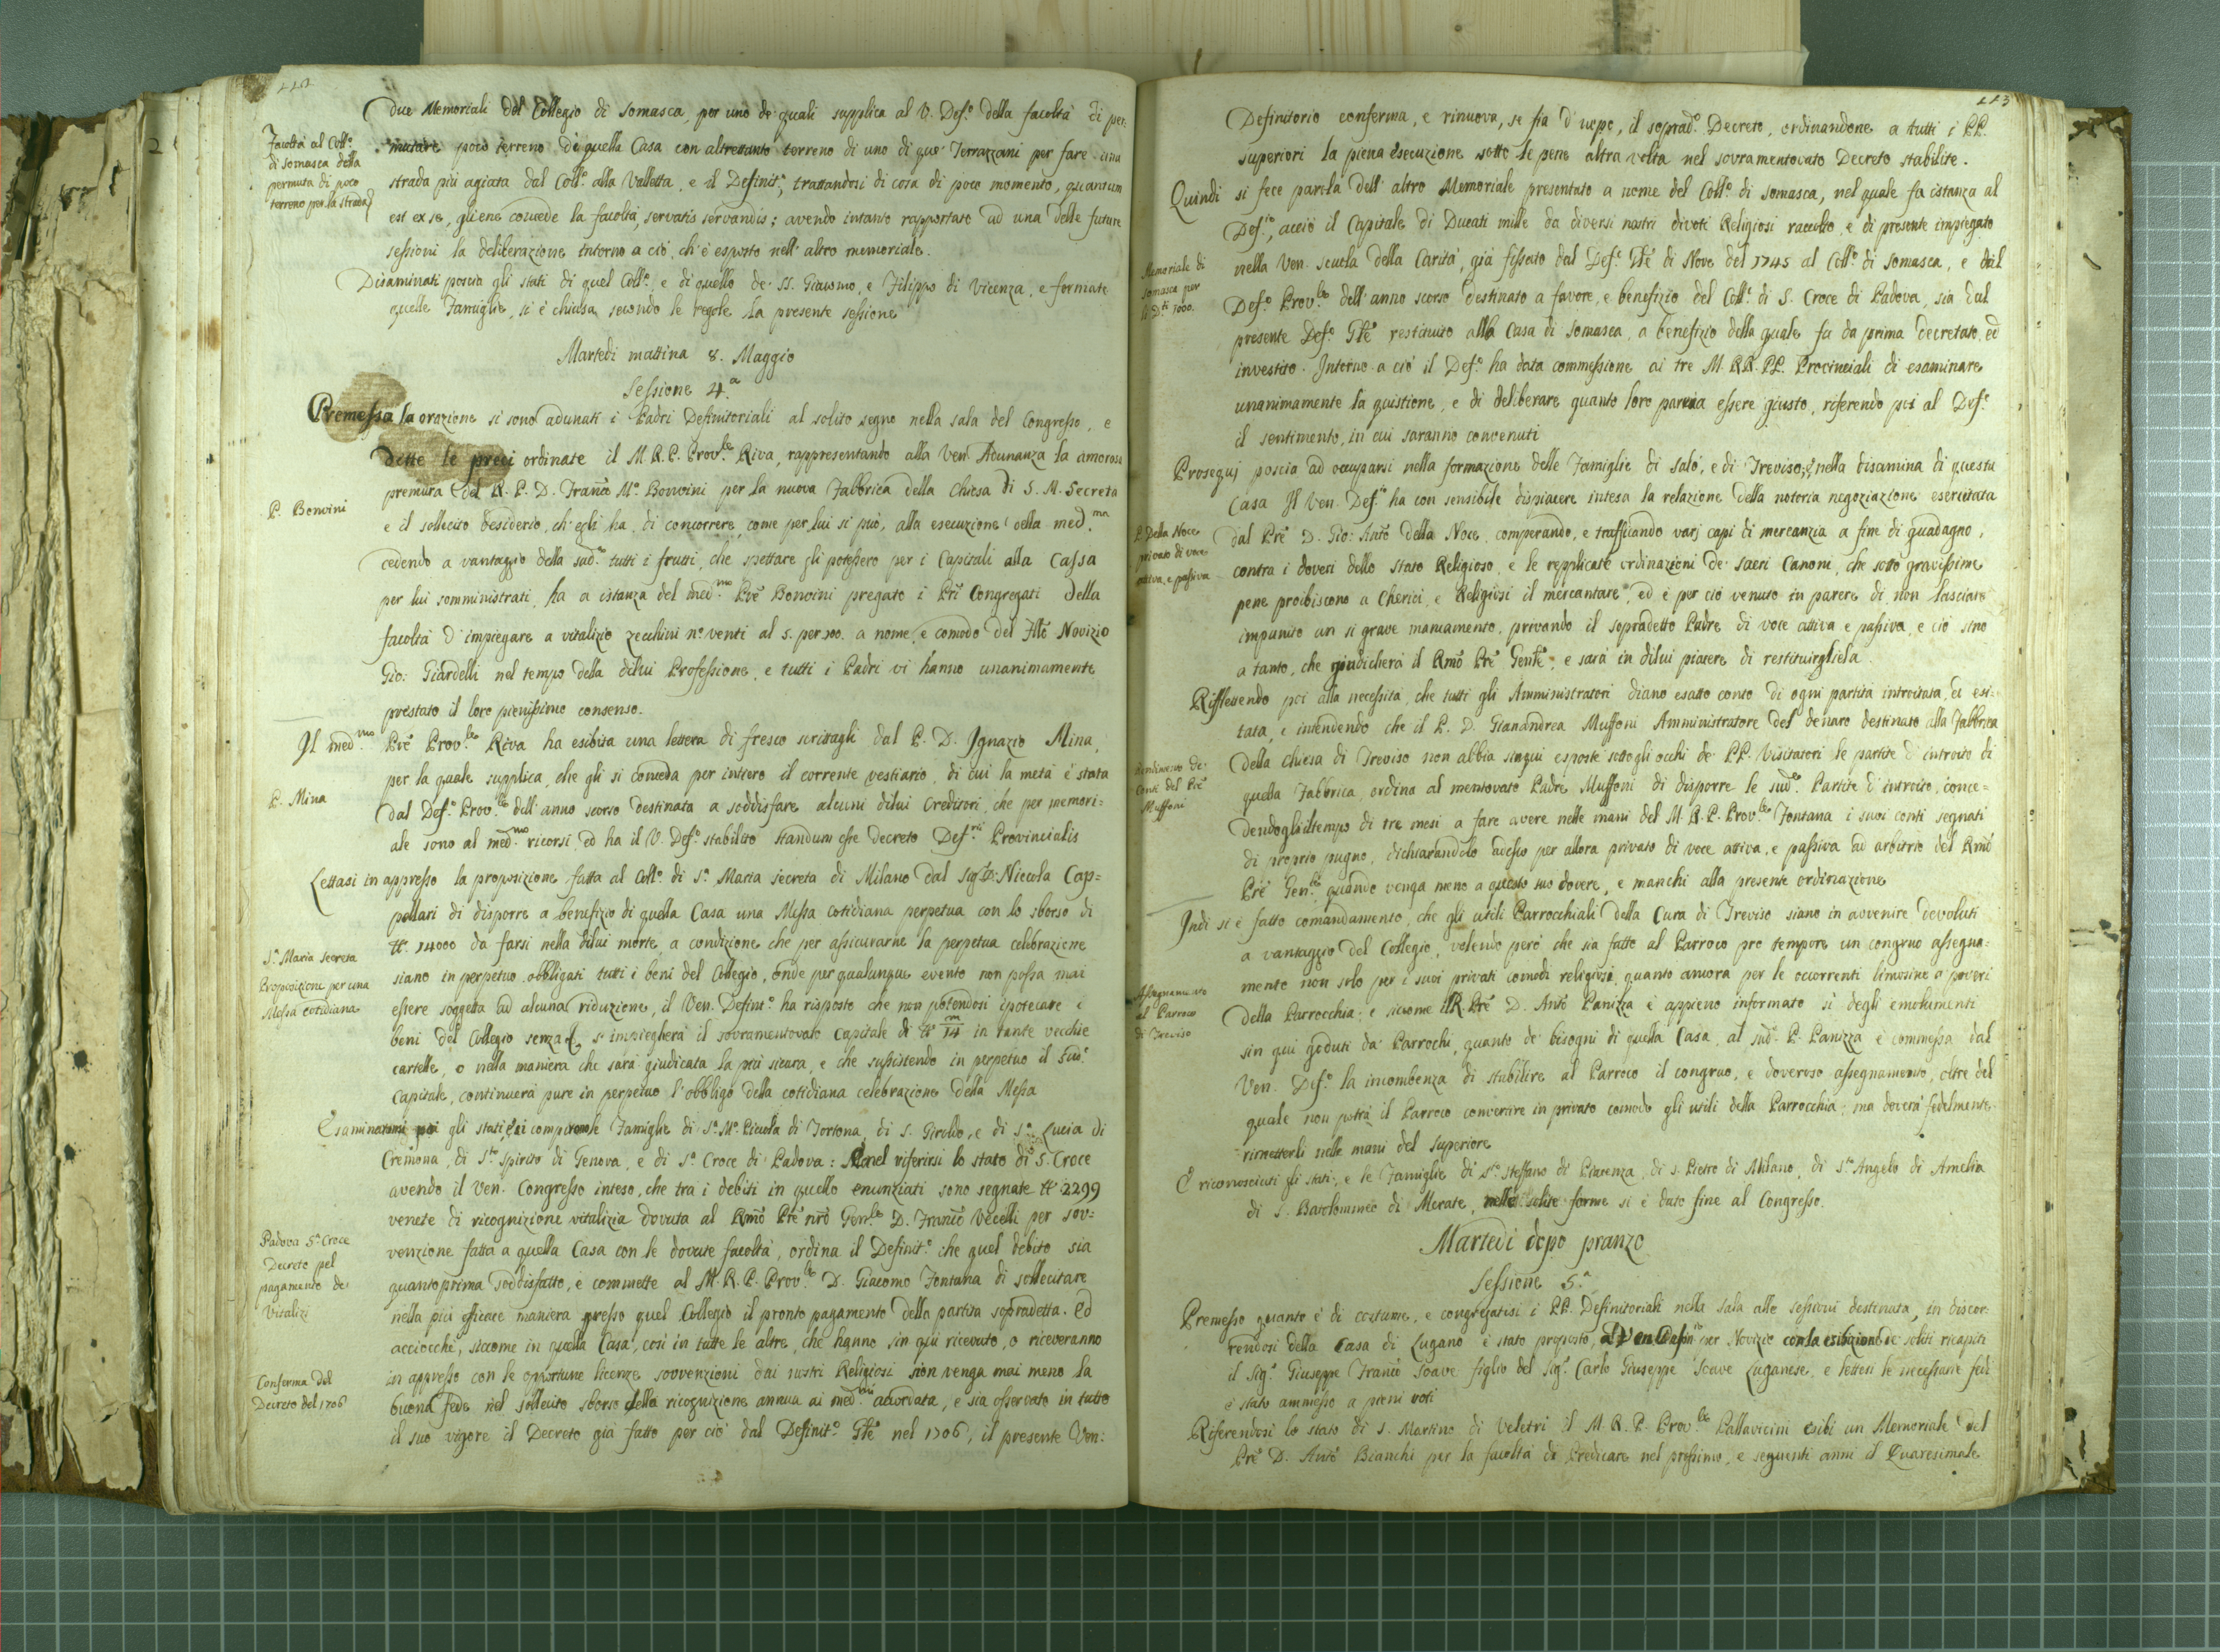 due Memoriali del Collegio di Somasca, per uno de' quali supplica al V. Def.º della facoltà di per:
Facoltà al Coll.º
di Somasca della
permuta di poco
terreno per la strada
mutare poco terreno di quella Casa con altrettanto terreno di uno di que' Terrazzani per fare una
strada più agiata dal Coll.º alla Valletta, e il Definit.º, trattandosi di cosa di poco momento, quantum
est ex se, gliene concede la facoltà, servatis servandis; avendo intanto rapportato ad una delle future
sessioni la deliberazione intorno a ciò, ch'è esposto nell'altro memoriale.
Disaminati poscia gli stati di quel Coll.º, e di quello de' SS. Giacomo, e Filippo di Vicenza, e formate
quelle Famiglie, si è chiusa secondo le regole la presente sessione
Martedì mattina 8. Maggio
Sessione 4.ª
Premessa la orazione si sono adunati i Padri Definitoriali al solito segno nella sala del Congresso, e
dette le preci ordinate il M.R.P. Prov.le Riva, rappresentando alla Ven. Adunanza la amorosa
premura del R.P.D. Franc.º M.ª Bonvini per la nuova Fabbrica della Chiesa di S. M. Secreta
P. Bonvini
e il sollecito desiderio, ch'egli ha, di concorrere, come per lui si può, alla esecuzione della med.ma
cedendo a vantaggio della sud.ª tutti i frutti, che spettare gli potessero per i Capitali alla Cassa
per lui somministrati, ha a istanza del med.mo Prē Bonvini pregato i Pri Congregati della
facoltà d'impiegare a vitalizio zecchini nº venti al 5. per 100. a nome, e comodo del Novizio
Gio: Giardelli nel tempo della dilui Professione, e tutti i Padri vi hanno unanimamente
prestato il loro pienissimo consenso.
Il med.mo Prē Prov.le Riva ha esibita una lettera di fresco scrittagli dal P. D. Ignazio Mina,
per la quale supplica, che gli si conceda per intiero il corrente vestiario, di cui la metà è stata
P. Mina
dal Def.º Prov.le dell'anno scorso destinata a soddisfare alcuni dilui Creditori, che per memori=
ale sono al med.mo ricorsi, ed ha il V. Def.º stabilito standum esse decreto Def.rii Provincialis
Lettasi in appresso la proposizione fatta al Coll.º di S.ª Maria Secreta di Milano dal Sig.r D. Niccola Cap=
pellari di disporre a benefizio di quella Casa una Messa cotidiana perpetua con lo sborso di
₶. 14000 da farsi nella dilui morte, a condizione che per assicurarne la perpetua celebrazione
S.ª Maria Secreta
Proposizione per una
Messa cotidiana
siano in perpetuo obbligati tutti i beni del Collegio, onde per qualunque evento non possa mai
essere soggetta ad alcuna riduzione, il Ven. Definit.º ha risposto che non potendosi ipotecare i
beni del Collegio senza si impiegherà il sovramentovato Capitale di ₶ 14 m in tante vecchie
cartelle, o nella maniera che sarà giudicata la più sicura, e che sussistendo in perpetuo il sud.º
Capitale, continuerà pure in perpetuo l'obbligo della cotidiana celebrazione della Messa
Esaminaronsi poi gli stati, e si compirono le Famiglie di S.ª M.ª Piccola di Tortona, di S. Giroldo, e di S.ª Lucia di
Cremona, di S.to Spirito di Genova, e di S.ª Croce di Padova: nel riferirsi lo stato di S. Croce
avendo il Ven. Congresso inteso, che tra i debiti in quello enunziati sono segnate ₶ 2299
venete di ricognizione vitalizia dovuta al Rmō Prē nrō Gen.le D. Franc.º Vecelli per sov:
Padova S.ª Croce
Decreto pel
pagamento de'
Vitalizi
venzione fatta a quella Casa con le dovute facoltà, ordina il Definit.º che quel debito sia
quanto prima soddisfatto, e commette al M.R.P. Prov.le D. Giacomo Fontana di sollecitare
nella più efficace maniera presso quel Collegio il pronto pagamento della partita sopradetta. Ed
acciocchè, siccome in quella Casa, così in tutte le altre, che hanno sin qui ricevuto, o riceveranno
in appresso con le opportune licenze sovvenzioni dai nostri Religiosi non venga mai meno la
Conferma del
Decreto del 1706
buona fede nel sollecito sborso della ricognizione annua ai med.mi accordata, e sia osservato in tutto
il suo vigore il Decreto già fatto per ciò dal Definit.º Gñle nel 1706, il presente Ven:
113
Definitorio conferma, e rinuova, se fia d'uopo, il soprad.º Decreto, ordinandone a tutti i PP.
superiori la piena esecuzione sotto le pene altra volta nel sovramentovato Decreto stabilite.
Quindi si fece parola dell'altro Memoriale presentato a nome del Coll.º di Somasca, nel quale fa istanza al
Def.io, acciò il Capitale di Ducati mille da diversi nostri divoti Religiosi raccolto, e di presente impiegato
Memoriale di
Somasca per
li D.ti 1000.
nella Ven. Scuola della Carità, già fissato dal Def.º Gñle di Nove del 1745 al Coll.º di Somasca, e dal
Def.º Prov.le dell'anno scorso destinato a favore, e benefizio del Coll.º di S. Croce di Padova, sia dal
presente Def.º Gñle restituito alla Casa di Somasca, a benefizio della quale fu da prima decretato, ed
investito. Intorno a ciò il Def.º ha data commessione ai tre M.RR.PP. Provinciali di esaminare
unanimamente la quistione, e di deliberare quanto loro parrà essere giusto, riferendo poi al Def.º
il sentimento, in cui saranno convenuti
Proseguì poscia ad occuparsi nella formazione delle Famiglie di Salò, e di Treviso; e nella disamina di questa
Casa Il Ven. Def.io ha con sensibile dispiacere intesa la relazione della notoria negoziazione esercitata
P. Della Noce
privato di voce
attiva, e passiva
dal Prē D. Gio: Antº Della Noce, comperando, e trafficando varj capi di mercanzia a fine di guadagno,
contra i doveri dello stato Religioso, e le repplicate ordinazioni de' Sacri Canoni, che sotto gravissime
pene proibiscono a Cherici, e Religiosi il mercantare, ed è per ciò venuto in parere di non lasciare
impunito un sì grave mancamento, privando il sopradetto Padre di voce attiva e passiva, e ciò sino
a tanto, che giudicherà il Rmō Prē Gen.le, e sarà in dilui piacere di restituirgliela.
Riflettendo poi alla necessità, che tutti gli Amministratori diano esatto conto di ogni partita introitata, ed esi:
tata, e intendendo che il P. D. Gianandrea Muffoni Amministratore del denaro destinato alla Fabbrica
Rendimento de'
Conti del Prē
Muffoni
della chiesa di Treviso non abbia sinqui esposte sotto gli occhi de' PP. Visitatori le partite d'introito di
quella Fabbrica, ordina al mentovato Padre Muffoni di disporre le sud.e Partite d'introito, conce=
dendogli il tempo di tre mesi a fare avere nelle mani del M.R.P. Prov.le Fontana i suoi conti segnati
di proprio pugno, dichiarandolo adesso per allora privato di voce attiva, e passiva ad arbitrio del Rmō
Prē Gen.le quando venga meno a questo suo dovere, e manchi alla presente ordinazione
Indi si è fatto comandamento, che gli utili Parrocchiali della Cura di Treviso siano in avvenire devoluti
a vantaggio del Collegio, volendo però che sia fatto al Parroco pro tempore un congruo assegna:
mento non solo per i suoi privati comodi religiosi, quanto ancora per le occorrenti limosine a poveri
Assegnamento
al Parroco
di Treviso
della Parrocchia; e siccome il R. Prē D. Antº Panizza è appieno informato sì degli emolumenti
sin qui goduti da' Parrochi, quanto de' bisogni di quella Casa, al sud.º P. Panizza è commessa dal
Ven. Def.º la incombenza di stabilire al Parroco il congruo, e doveroso assegnamento, oltre del
quale non potrà il Parroco convertire in privato comodo gli utili della Parrocchia; ma doverà fedelmente
rimetterli nelle mani del superiore
E riconosciuti gli stati, e le Famiglie di S.to Steffano di Piacenza, di S. Pietro di Milano, di S.to Angelo di Amelia
di S. Bartolommeo di Merate, nelle solite forme si è dato fine al Congresso.
Martedì dopo pranzo
Sessione 5.ª
Premesso quanto è di costume, e congregatisi i PP. Definitoriali nella sala alle sessioni destinata, in discor:
rendosi della Casa di Lugano è stato proposto al Ven. Defin.io per Novizio con la esibizione de' soliti ricapiti
il Sig.r Giuseppe Franc.º Soave figlio del Sig.r Carlo Giuseppe Soave Luganese, e lettesi le necessarie fedi
è stato ammesso a pieni voti
Riferendosi lo stato di S. Martino di Veletri il M.R.P. Prov.le Pallavicini esibì un Memoriale del
Prē D. Antº Bianchi per la facoltà di Predicare nel prossimo, e seguenti anni il Quaresimale